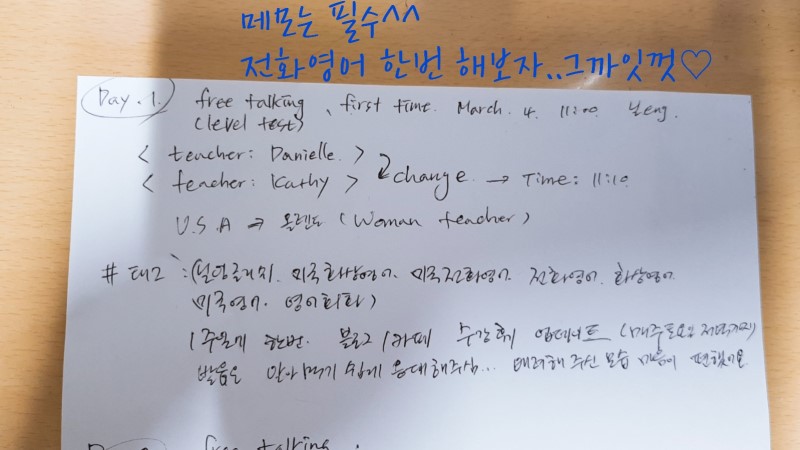 메모는 필수^^
전화영어 한번 해보자..그까잇껏♡
Day. 1. free talking, first time. March. 4. 11:00
(level test)
< teacher: Danielle. >
< teacher: Kathy > change. → Time: 11:10
U.S.A ⇒ 올랜도 (Woman teacher)
# 태그 : 미국화상영어. 미국전화영어. 전화영어. 화상영어
미국영어. 영어회화)
1주일에 한번. 블로그/카페 수강후기 업데이트 (매주 토요일 저녁까지)
발음도 알아먹기 쉽게 응대해주심... 배려해주신 모습 마음이 편했어요
free talking.